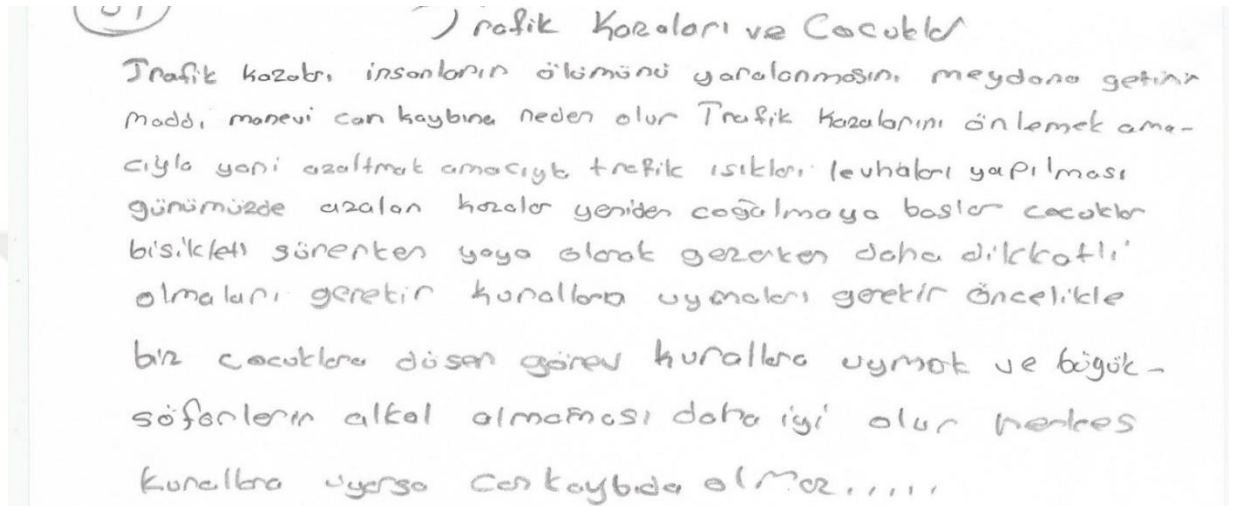 Trafik Kazaları ve Cocuklar
Trafik kazaları insanların ölümünü yaralanmasını meydana getirir
maddi manevi can kaybına neden olur Trafik Kazalarını önlemek ama-
cıyla yani azaltmak amacıyla trafik ısıkları levhaları yapılması
günümüzde azalan kazalar yeniden coğalmaya baslar cocuklar
bisikleti sürerken yaya olarak gezerken daha dikkatli
olmaları gerekir kurallara uymaları gerekir öncelikle
biz cocuklara düsen görev kurallara uymak ve büyük-
söförlerin alkol almaması daha iyi olur herkes
kurallara uyarsa can kaybıda olmaz.....